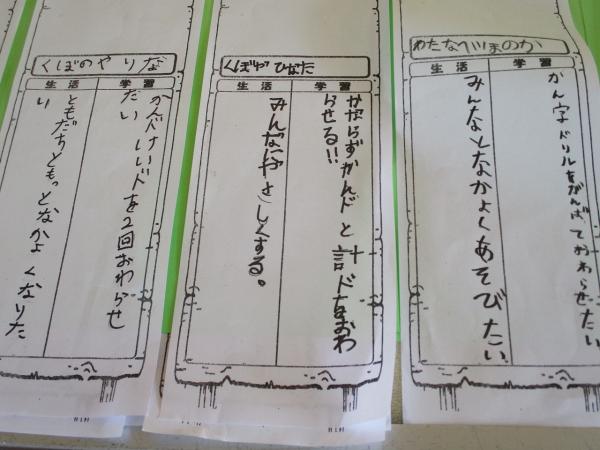 くぼのやりな
生活 学習
かんドけいドを2回おわらせ
たい
ともだちともっとなかよくなりた
い
くぼやひなた
生活 学習
かならずかんドと計ドをおわ
らせる!!
みんなにやさしくする。
わたなべまのか
生活 学習
かん字ドリルをがんばておわらせたい
みんなとなかよくあそびたい